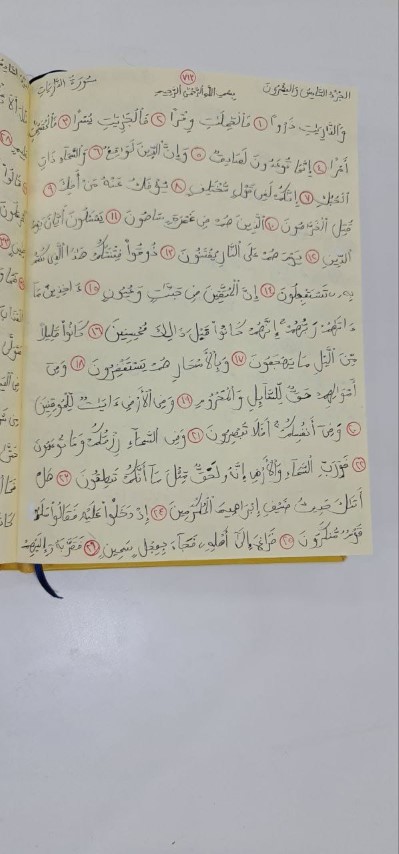 الجزء السادس والعشرون ٧١٢ سورة الذاريات
بسم الله الرحمن الرحيم
وَالذَّارِيَاتِ ذَرْوًا ١ فَالْحَامِلَاتِ وِقْرًا ٢ فَالْجَارِيَاتِ يُسْرًا ٣ فَالْمُقَسِّمَاتِ
أَمْرًا ٤ إِنَّمَا تُوعَدُونَ لَصَادِقٌ ٥ وَإِنَّ الدِّينَ لَوَاقِعٌ ٦ وَالسَّمَاءِ ذَاتِ
الْحُبُكِ ٧ إِنَّكُمْ لَفِي قَوْلٍ مُّخْتَلِفٍ ٨ يُؤْفَكُ عَنْهُ مَنْ أُفِكَ ٩
قُتِلَ الْخَرَّاصُونَ ١٠ الَّذِينَ هُمْ فِي غَمْرَةٍ سَاهُونَ ١١ يَسْأَلُونَ أَيَّانَ يَوْمُ
الدِّينِ ١٢ يَوْمَ هُمْ عَلَى النَّارِ يُفْتَنُونَ ١٣ ذُوقُوا فِتْنَتَكُمْ هَٰذَا الَّذِي كُنتُم
بِهِ تَسْتَعْجِلُونَ ١٤ إِنَّ الْمُتَّقِينَ فِي جَنَّاتٍ وَعُيُونٍ ١٥ ءَاخِذِينَ مَا
ءَاتَاهُمْ رَبُّهُمْ إِنَّهُمْ كَانُوا قَبْلَ ذَٰلِكَ مُحْسِنِينَ ١٦ كَانُوا قَلِيلًا
مِّنَ الَّيْلِ مَا يَهْجَعُونَ ١٧ وَبِالْأَسْحَارِ هُمْ يَسْتَغْفِرُونَ ١٨ وَفِي
أَمْوَالِهِمْ حَقٌّ لِّلسَّائِلِ وَالْمَحْرُومِ ١٩ وَفِي الْأَرْضِ ءَايَاتٌ لِّلْمُوقِنِينَ
٢٠ وَفِي أَنفُسِكُمْ أَفَلَا تُبْصِرُونَ ٢١ وَفِي السَّمَاءِ رِزْقُكُمْ وَمَا تُوعَدُونَ
٢٢ فَوَرَبِّ السَّمَاءِ وَالْأَرْضِ إِنَّهُ لَحَقٌّ مِّثْلَ مَا أَنَّكُمْ تَنطِقُونَ ٢٣ هَلْ
أَتَاكَ حَدِيثُ ضَيْفِ إِبْرَاهِيمَ الْمُكْرَمِينَ ٢٤ إِذْ دَخَلُوا عَلَيْهِ فَقَالُوا سَلَامًا
قَوْمٌ مُّنكَرُونَ ٢٥ فَرَاغَ إِلَىٰ أَهْلِهِ فَجَاءَ بِعِجْلٍ سَمِينٍ ٢٦ فَقَرَّبَهُ إِلَيْهِمْ